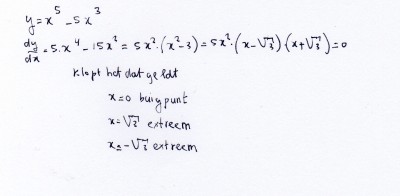 y = x⁵ - 5x³
dy/dx = 5.x⁴ - 15x² = 5x².(x²-3) = 5x².(x-√3).(x+√3) = 0
Klopt het dat geldt
x=0 buigpunt
x=√3 extreem
x=-√3 extreem